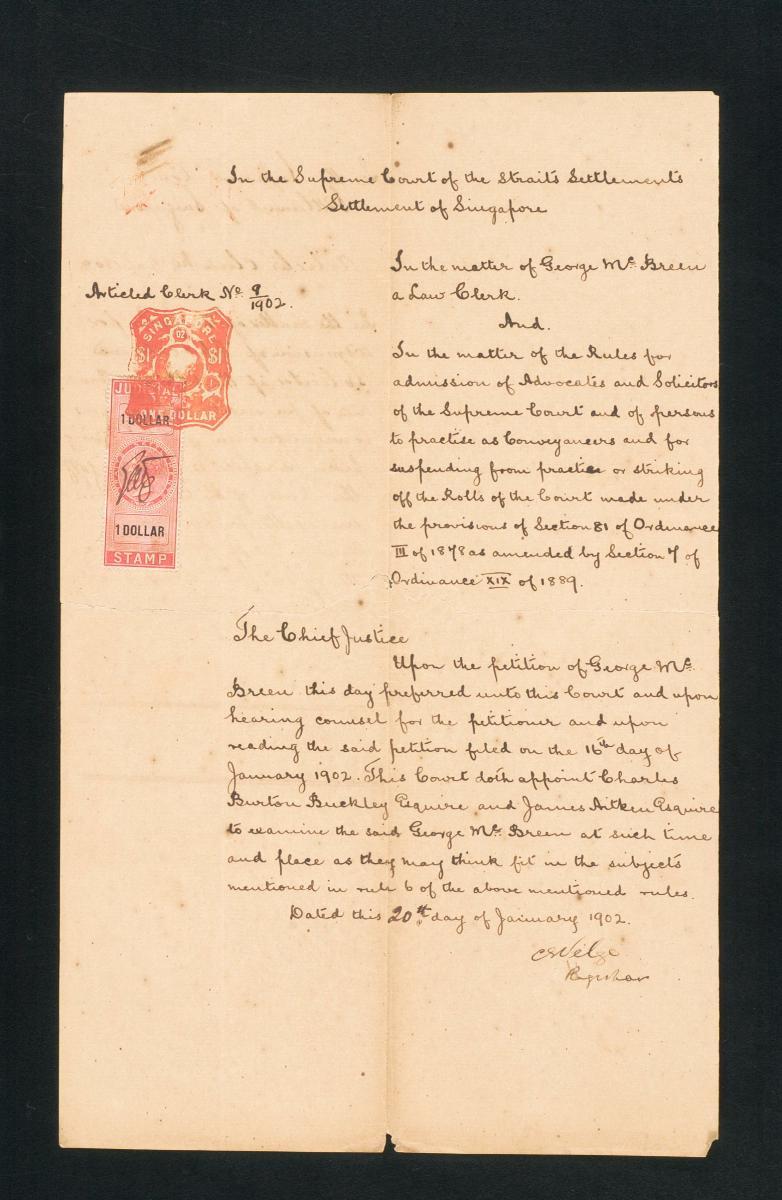 In the Supreme Court of the Straits Settlements
Settlement of Singapore
In the matter of George Mc Breen
a Law Clerk.
Articled Clerk No. 9/1902.
And.
In the matter of the Rules for
admission of Advocates and Solicitors
of the Supreme Court and of persons
to practise as Conveyancers and for
suspending from practice or striking
off the Rolls of the Court made under
the provisions of Section 81 of Ordinance
III of 1878 as amended by Section 7 of
Ordinance XIX of 1889.
SINGAPORE
02
$1 $1
ONE DOLLAR
JUDICIAL
1 DOLLAR
1 DOLLAR
STAMP
The Chief Justice
Upon the petition of George Mc
Breen this day preferred unto this Court and upon
hearing counsel for the petitioner and upon
reading the said petition filed on the 16th day of
January 1902. This Court doth appoint Charles
Burton Buckley Esquire and James Aitken Esquire
to examine the said George Mc Breen at such time
and place as they may think fit in the subjects
mentioned in rule 6 of the above mentioned rules.
Dated this 20th day of January 1902.
Registrar